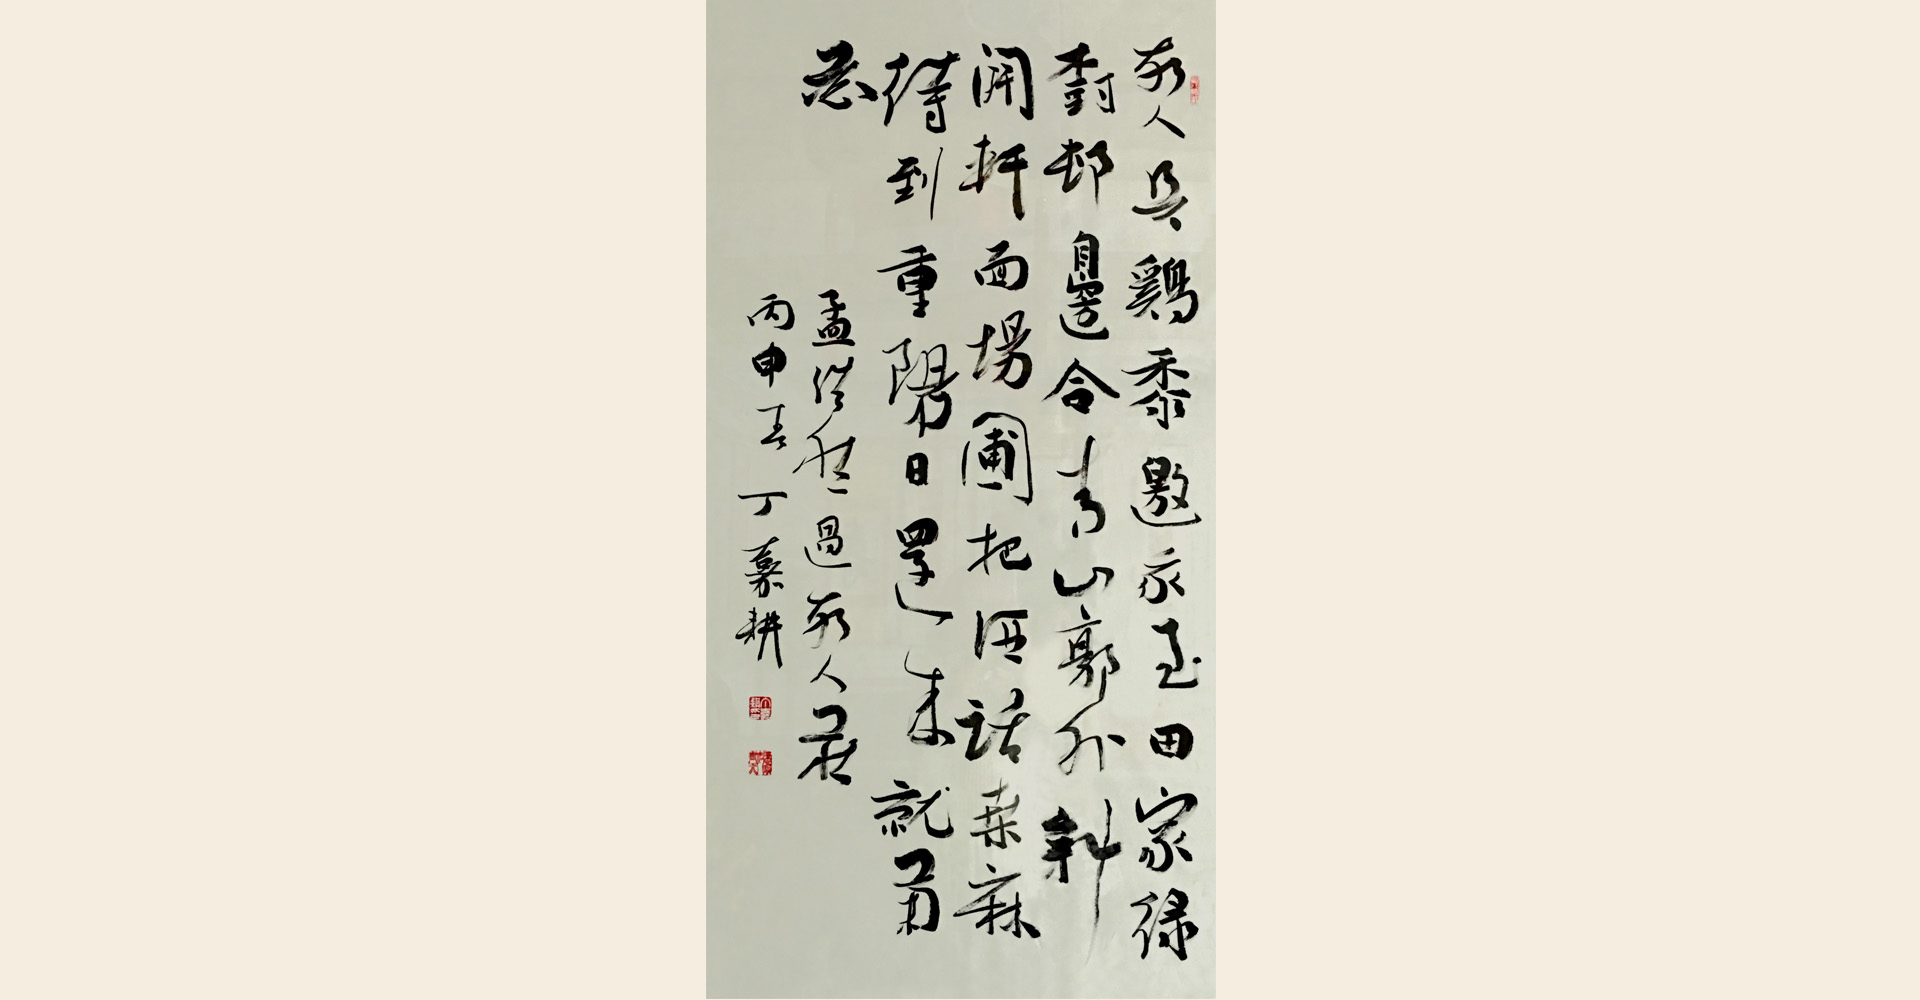 故人具鷄黍邀我至田家緑
樹邨邊合青山郭外斜
開軒面場圃把酒話桑麻
待到重陽日還來就菊
花
孟浩然過故人莊
丙申春丁嘉耕